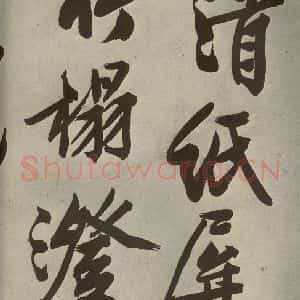 清紙屏
竹榻澄
Shufawang.CN